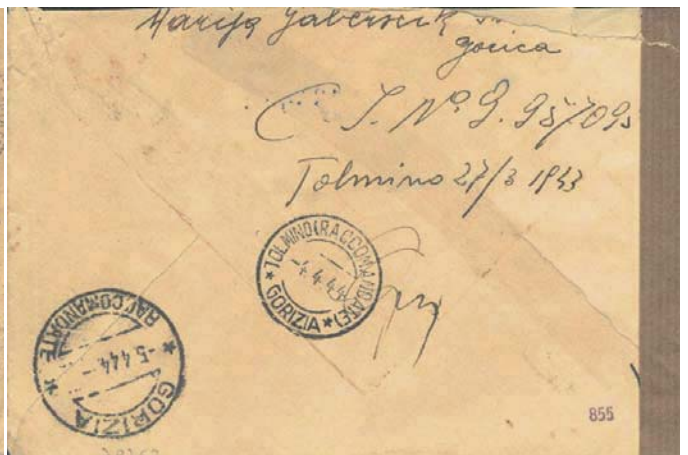 Marija Gaberscik
Gorica
C. I. Nº G. 95/095
Tolmino 27/3 1943
TOLMINO (RACCOMANDATE)
-4.4.44
* GORIZIA *
RACCOMANDATE
-5.4.44-
* GORIZIA *
855